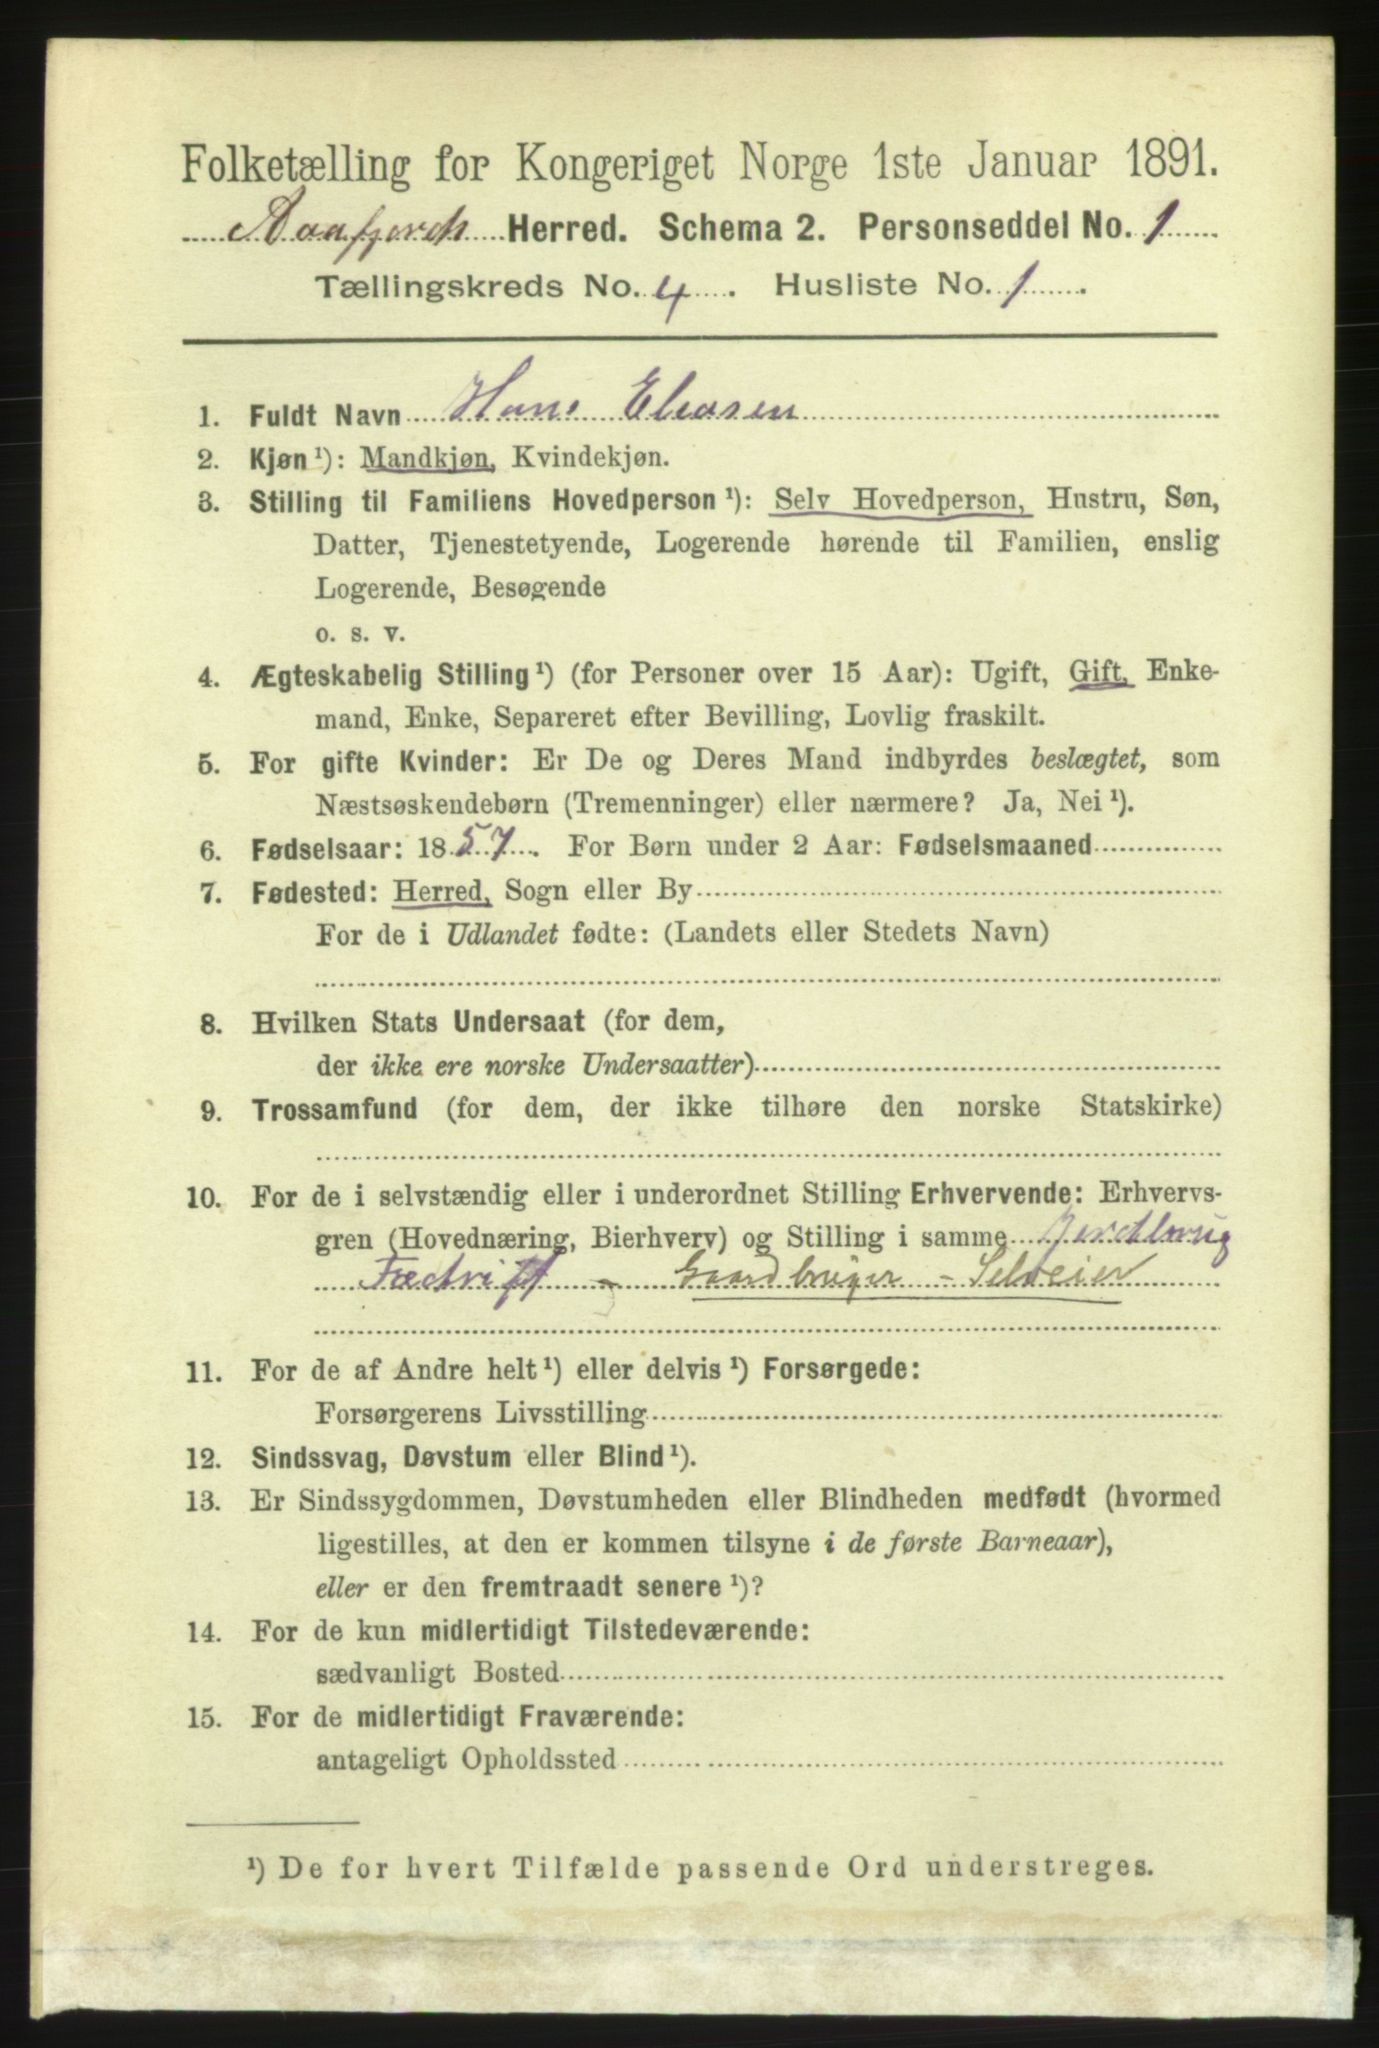 Folketælling for Kongeriget Norge 1ste Januar 1891.
Aafjord Herred. Schema 2. Personseddel No. 1
Tællingskreds No. 4. Husliste No. 1.
1. Fuldt Navn Hans Eliasen
2. Kjøn ¹): Mandkjøn, Kvindekjøn.
3. Stilling til Familiens Hovedperson ¹): Selv Hovedperson, Hustru, Søn,
Datter, Tjenestetyende, Logerende hørende til Familien, enslig
Logerende, Besøgende
o. s. v.
4. Ægteskabelig Stilling ¹) (for Personer over 15 Aar): Ugift, Gift, Enke-
mand, Enke, Separeret efter Bevilling, Lovlig fraskilt.
5. For gifte Kvinder: Er De og Deres Mand indbyrdes beslægtet, som
Næstsøskendebørn (Tremenninger) eller nærmere? Ja, Nei ¹).
6. Fødselsaar: 1857. For Børn under 2 Aar: Fødselsmaaned
7. Fødested: Herred, Sogn eller By
For de i Udlandet fødte: (Landets eller Stedets Navn)
8. Hvilken Stats Undersaat (for dem,
der ikke ere norske Undersaatter)
9. Trossamfund (for dem, der ikke tilhøre den norske Statskirke)
10. For de i selvstændig eller i underordnet Stilling Erhvervende: Erhvervs-
gren (Hovednæring, Bierhverv) og Stilling i samme Jordbrug
Fædrift - Gaardbruger - Selveier
11. For de af Andre helt ¹) eller delvis ¹) Forsørgede:
Forsørgerens Livsstilling
12. Sindssvag, Døvstum eller Blind ¹).
13. Er Sindssygdommen, Døvstumheden eller Blindheden medfødt (hvormed
ligestilles, at den er kommen tilsyne i de første Barneaar),
eller er den fremtraadt senere ¹)?
14. For de kun midlertidigt Tilstedeværende:
sædvanligt Bosted
15. For de midlertidigt Fraværende:
antageligt Opholdssted
¹) De for hvert Tilfælde passende Ord understreges.